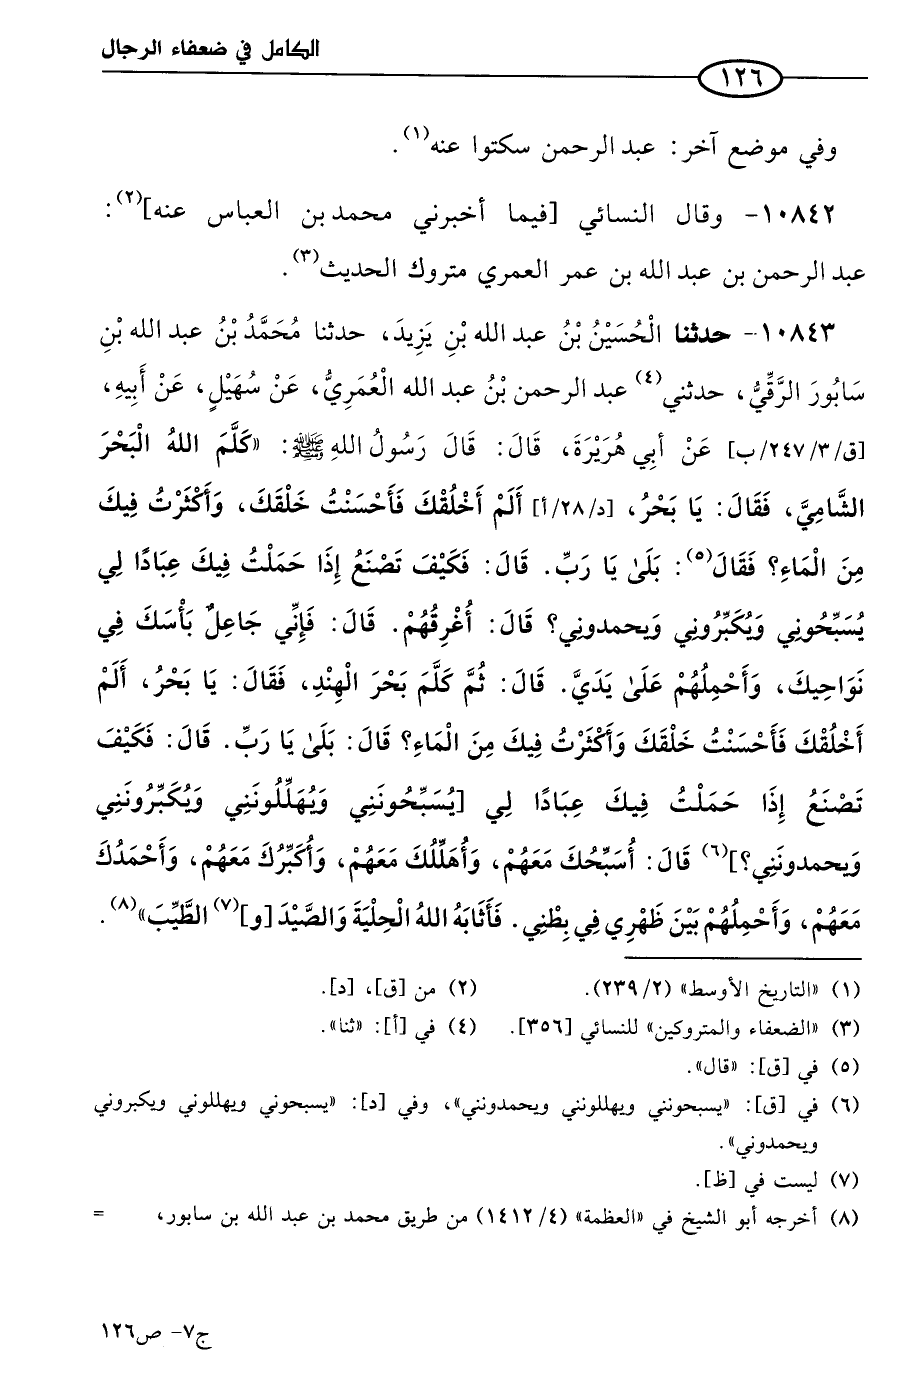 الكامل في ضعفاء الرجال
١٢٦
وفي موضع آخر: عبد الرحمن سكتوا عنه(١).
١٠٨٤٢- وقال النسائي [فيما أخبرني محمد بن العباس عنه](٢):
عبد الرحمن بن عبد الله بن عمر العمري متروك الحديث(٣).
١٠٨٤٣- حدثنا الْحُسَيْنُ بْنُ عبد الله بْنِ يَزِيدَ، حدثنا مُحَمَّدُ بْنُ عبد الله بْنِ
سَابُورَ الرَّقِّيُّ، حدثني(٤) عبد الرحمن بْنُ عبد الله الْعُمَرِيُّ، عَنْ سُهَيْلٍ، عَنْ أَبِيهِ،
[ق/٣/٢٤٧/ب] عَنْ أَبِي هُرَيْرَةَ، قَالَ: قَالَ رَسُولُ اللهِ ﷺ: «كَلَّمَ اللهُ الْبَحْرَ
الشَّامِيَّ، فَقَالَ: يَا بَحْرُ، [د/٢٨/أ] أَلَمْ أَخْلُقْكَ فَأَحْسَنْتُ خَلْقَكَ، وَأَكْثَرْتُ فِيكَ
مِنَ الْمَاءِ؟ فَقَالَ(٥): بَلَىٰ يَا رَبِّ. قَالَ: فَكَيْفَ تَصْنَعُ إِذَا حَمَلْتُ فِيكَ عِبَادًا لِي
يُسَبِّحُونِي وَيُكَبِّرُونِي ويحمدوني؟ قَالَ: أُغْرِقُهُمْ. قَالَ: فَإِنِّي جَاعِلٌ بَأْسَكَ فِي
نَوَاحِيكَ، وَأَحْمِلُهُمْ عَلَىٰ يَدَيَّ. قَالَ: ثُمَّ كَلَّمَ بَحْرَ الْهِنْدِ، فَقَالَ: يَا بَحْرُ، أَلَمْ
أَخْلُقْكَ فَأَحْسَنْتُ خَلْقَكَ وَأَكْثَرْتُ فِيكَ مِنَ الْمَاءِ؟ قَالَ: بَلَىٰ يَا رَبِّ. قَالَ: فَكَيْفَ
تَصْنَعُ إِذَا حَمَلْتُ فِيكَ عِبَادًا لِي [يُسَبِّحُونَنِي وَيُهَلِّلُونَنِي وَيُكَبِّرُونَنِي
وَيحمدونَنِي؟](٦) قَالَ: أُسَبِّحُكَ مَعَهُمْ، وَأُهَلِّلُكَ مَعَهُمْ، وَأُكَبِّرُكَ مَعَهُمْ، وَأَحْمَدُكَ
مَعَهُمْ، وَأَحْمِلُهُمْ بَيْنَ ظَهْرِي فِي بِطْنِي. فَأَثَابَهُ اللهُ الْحِلْيَةَ وَالصَّيْدَ [و](٧) الطَّيِّبَ»(٨).
(١) «التاريخ الأوسط» (٢/٢٣٩). (٢) من [ق]، [د].
(٣) «الضعفاء والمتروكين» للنسائي [٣٥٦]. (٤) في [أ]: «ثنا».
(٥) في [ق]: «قال».
(٦) في [ق]: «يسبحونني ويهللونني ويحمدونني»، وفي [د]: «يسبحوني ويهللوني ويكبروني
ويحمدوني».
(٧) ليست في [ظ].
(٨) أخرجه أبو الشيخ في «العظمة» (٤/١٤١٢) من طريق محمد بن عبد الله بن سابور، =
ج٧- ص١٢٦